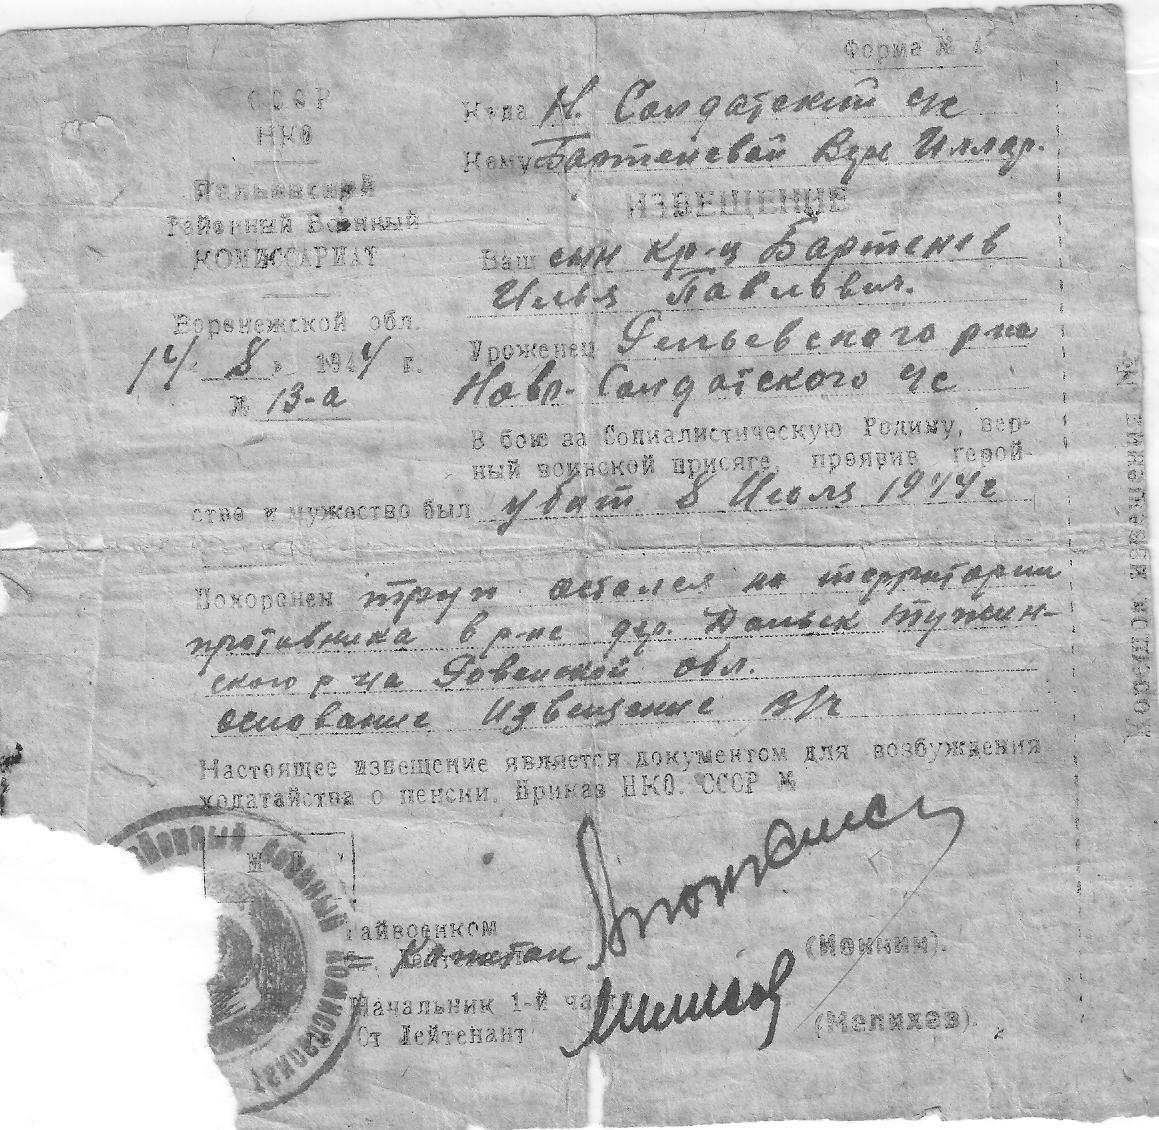 Форма №
СССР
НКО
Районный Военный
КОМИССАРИАТ
Воронежской обл.
14 8 1944 г.
№ 13-а
Куда Н. Солдатский с/с
Кому Бартеневой Иллар.
ИЗВЕЩЕНИЕ
Ваш сын кр-ц Бартенев
Илья Павлович.
Уроженец р-на
Ново-Солдатского с/с
В бою за Социалистическую Родину, вер-
ный воинской присяге, проявив герой-
ство и мужество был убит 8 Июля 1944 г
Похоронен труп остался на территории
противника в р-не дер. Дольск
ского р-на Ровенской обл.
основание Извещение в/ч
Настоящее извещение является документом для возбуждения
ходатайства о пенсии. Приказ НКО. СССР №
М П
Райвоенком
Капитан
(Мокшин).
Начальник 1-й части
Ст Лейтенант
(Мелихов).
районный военный комиссариат